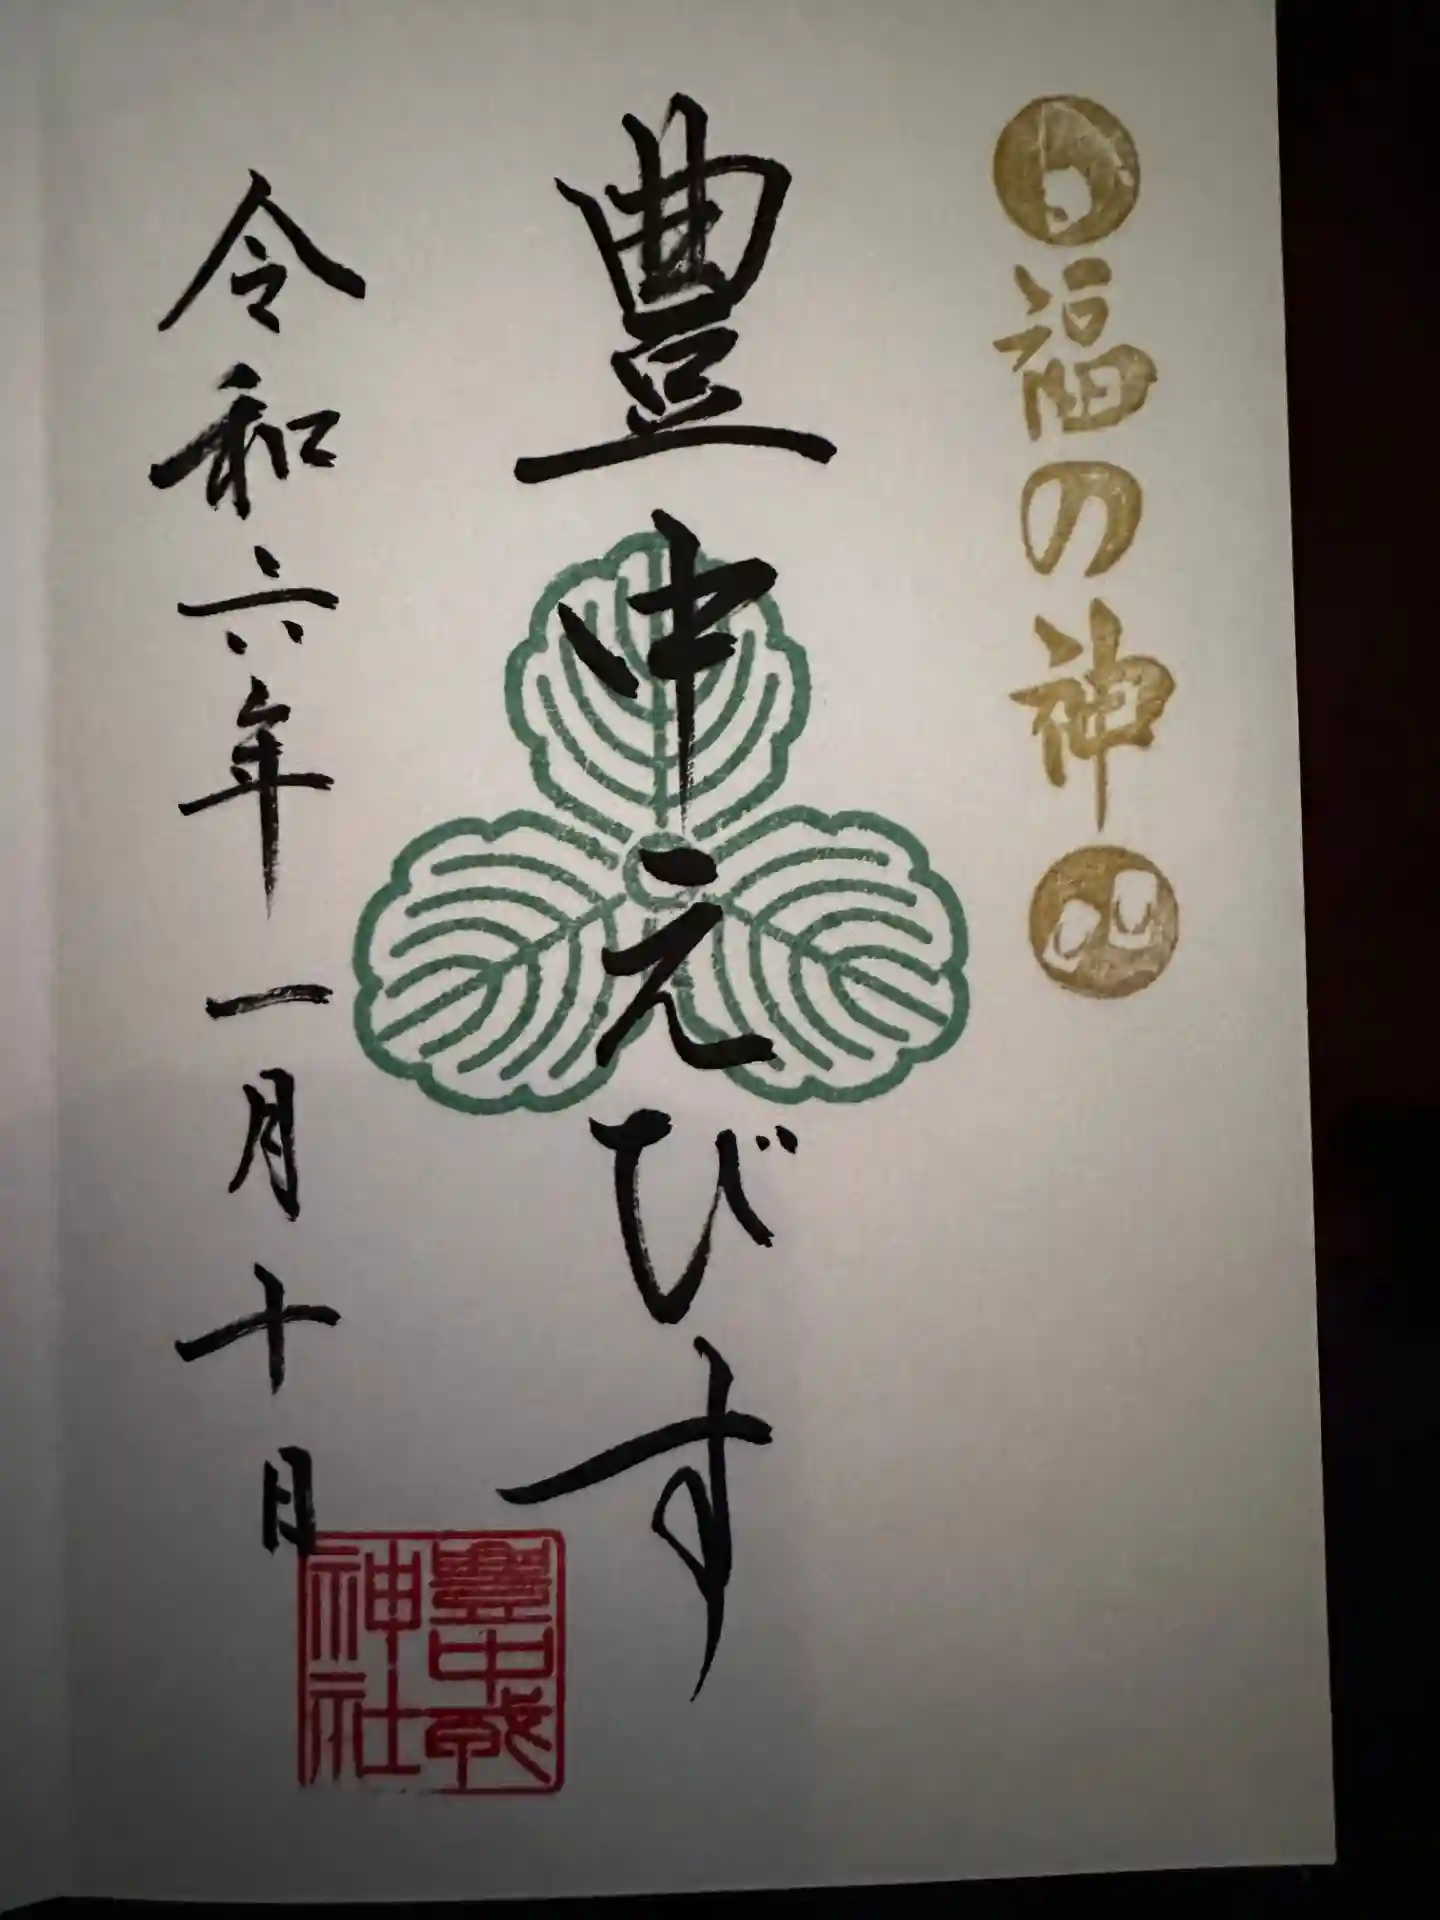 福の神
豊中えびす
令和六年一月十日
豐中戎
神社